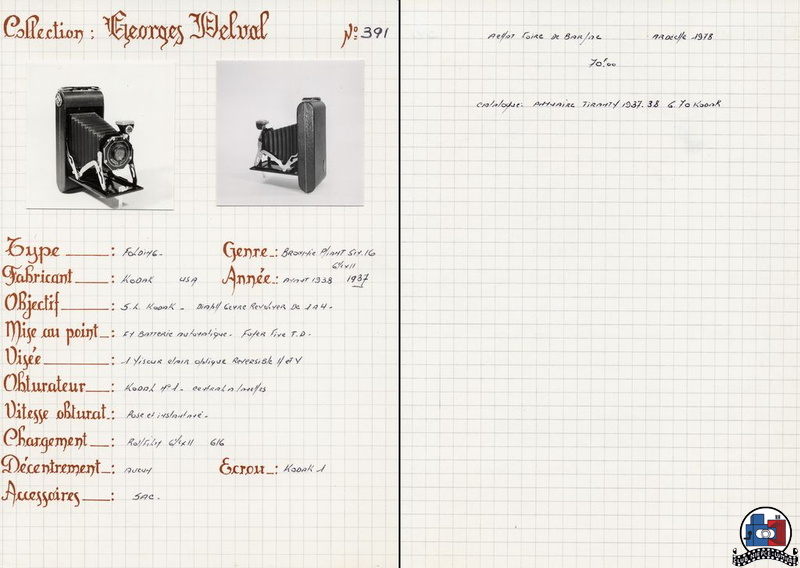 Collection : Georges Delval Nº 391
Type : FOLDING.
Genre : BROWNIE PLIANT SIX.16
6½x11
Fabricant : KODAK USA
Année : AVANT 1938 1937
Objectif : S.L. KODAK. GENRE REVOLVER DE 1 A 4.
Mise au point : ET BATTERIE AUTOMATIQUE. FOYER FIXE T.D.
Visée : 1 VISEUR CLAIR OBLIQUE REVERSIBLE H et V
Obturateur : KODAK Nº 1. central a lamelles
Vitesse obturat : Pose et instantané.
Chargement : ROLLFILM 6½x11 616
Décentrement : AUCUN
Ecrou : KODAK 1
Accessoires : SAC.
ACHAT FOIRE DE ARDECHE 1978
70.00
Catalogue: ANNUAIRE TIRANTY 1937.38 G.70 KODAK